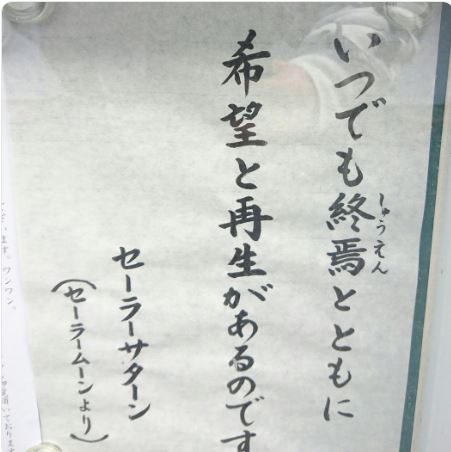 いつでも終焉とともに
しゅうえん
希望と再生があるのです
セーラーサターン
(セーラームーンより)
ございます。ワンワン。